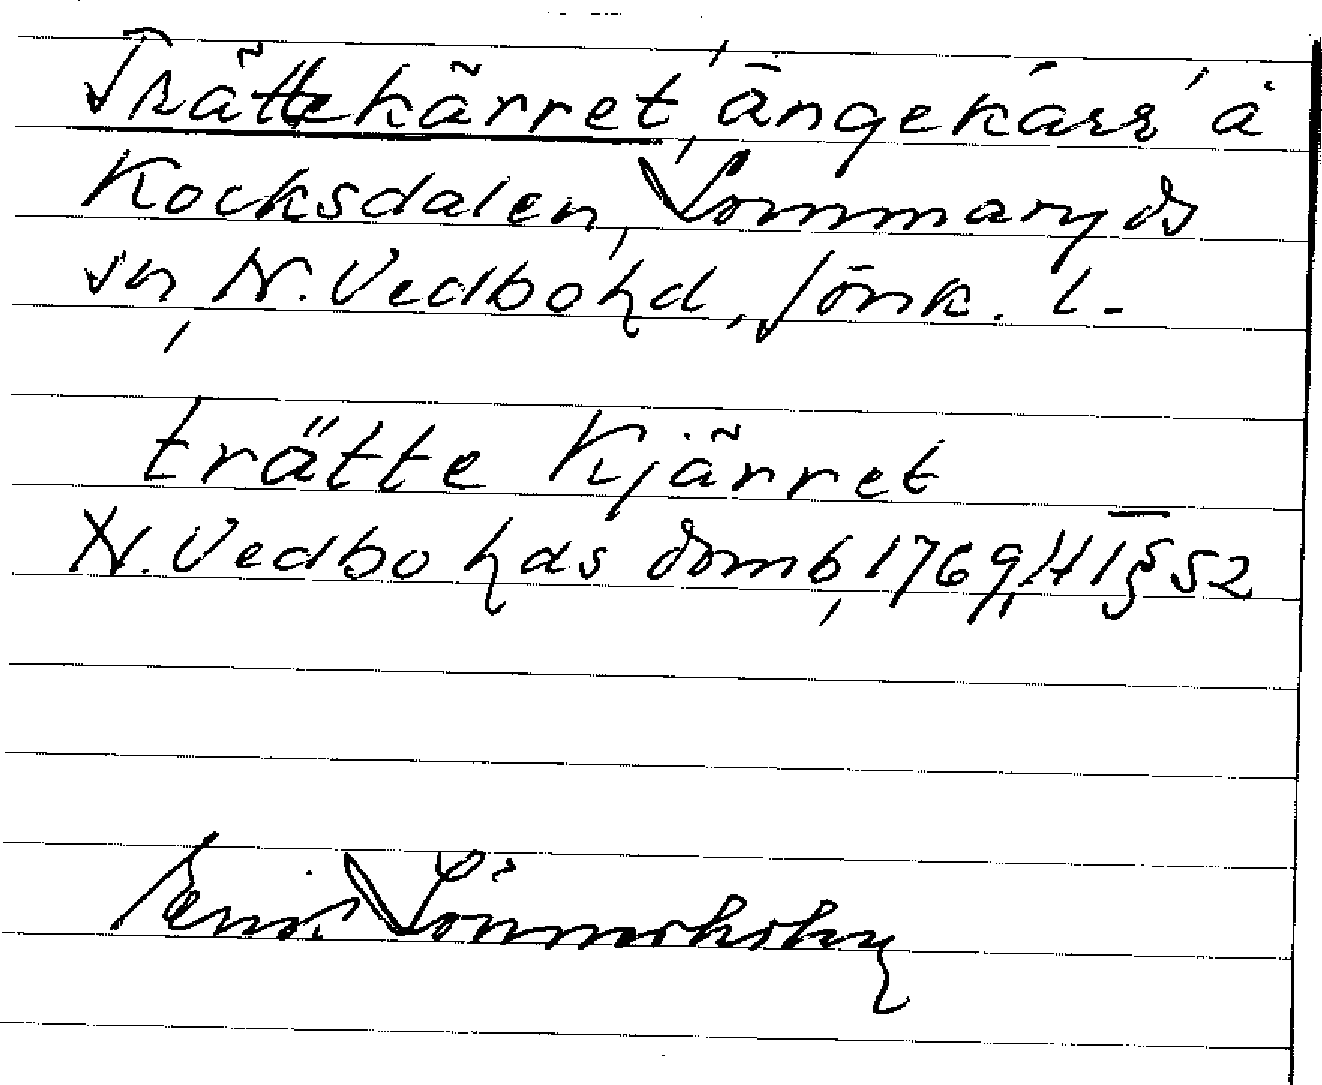 Trättekärret, 'ängekärr' å
Kocksdalen, Lommaryds
sn, N. Vedbo hd, Jönk. l.
trätte Kjärret
N. Vedbo hds domb, 1769, H1 § 52